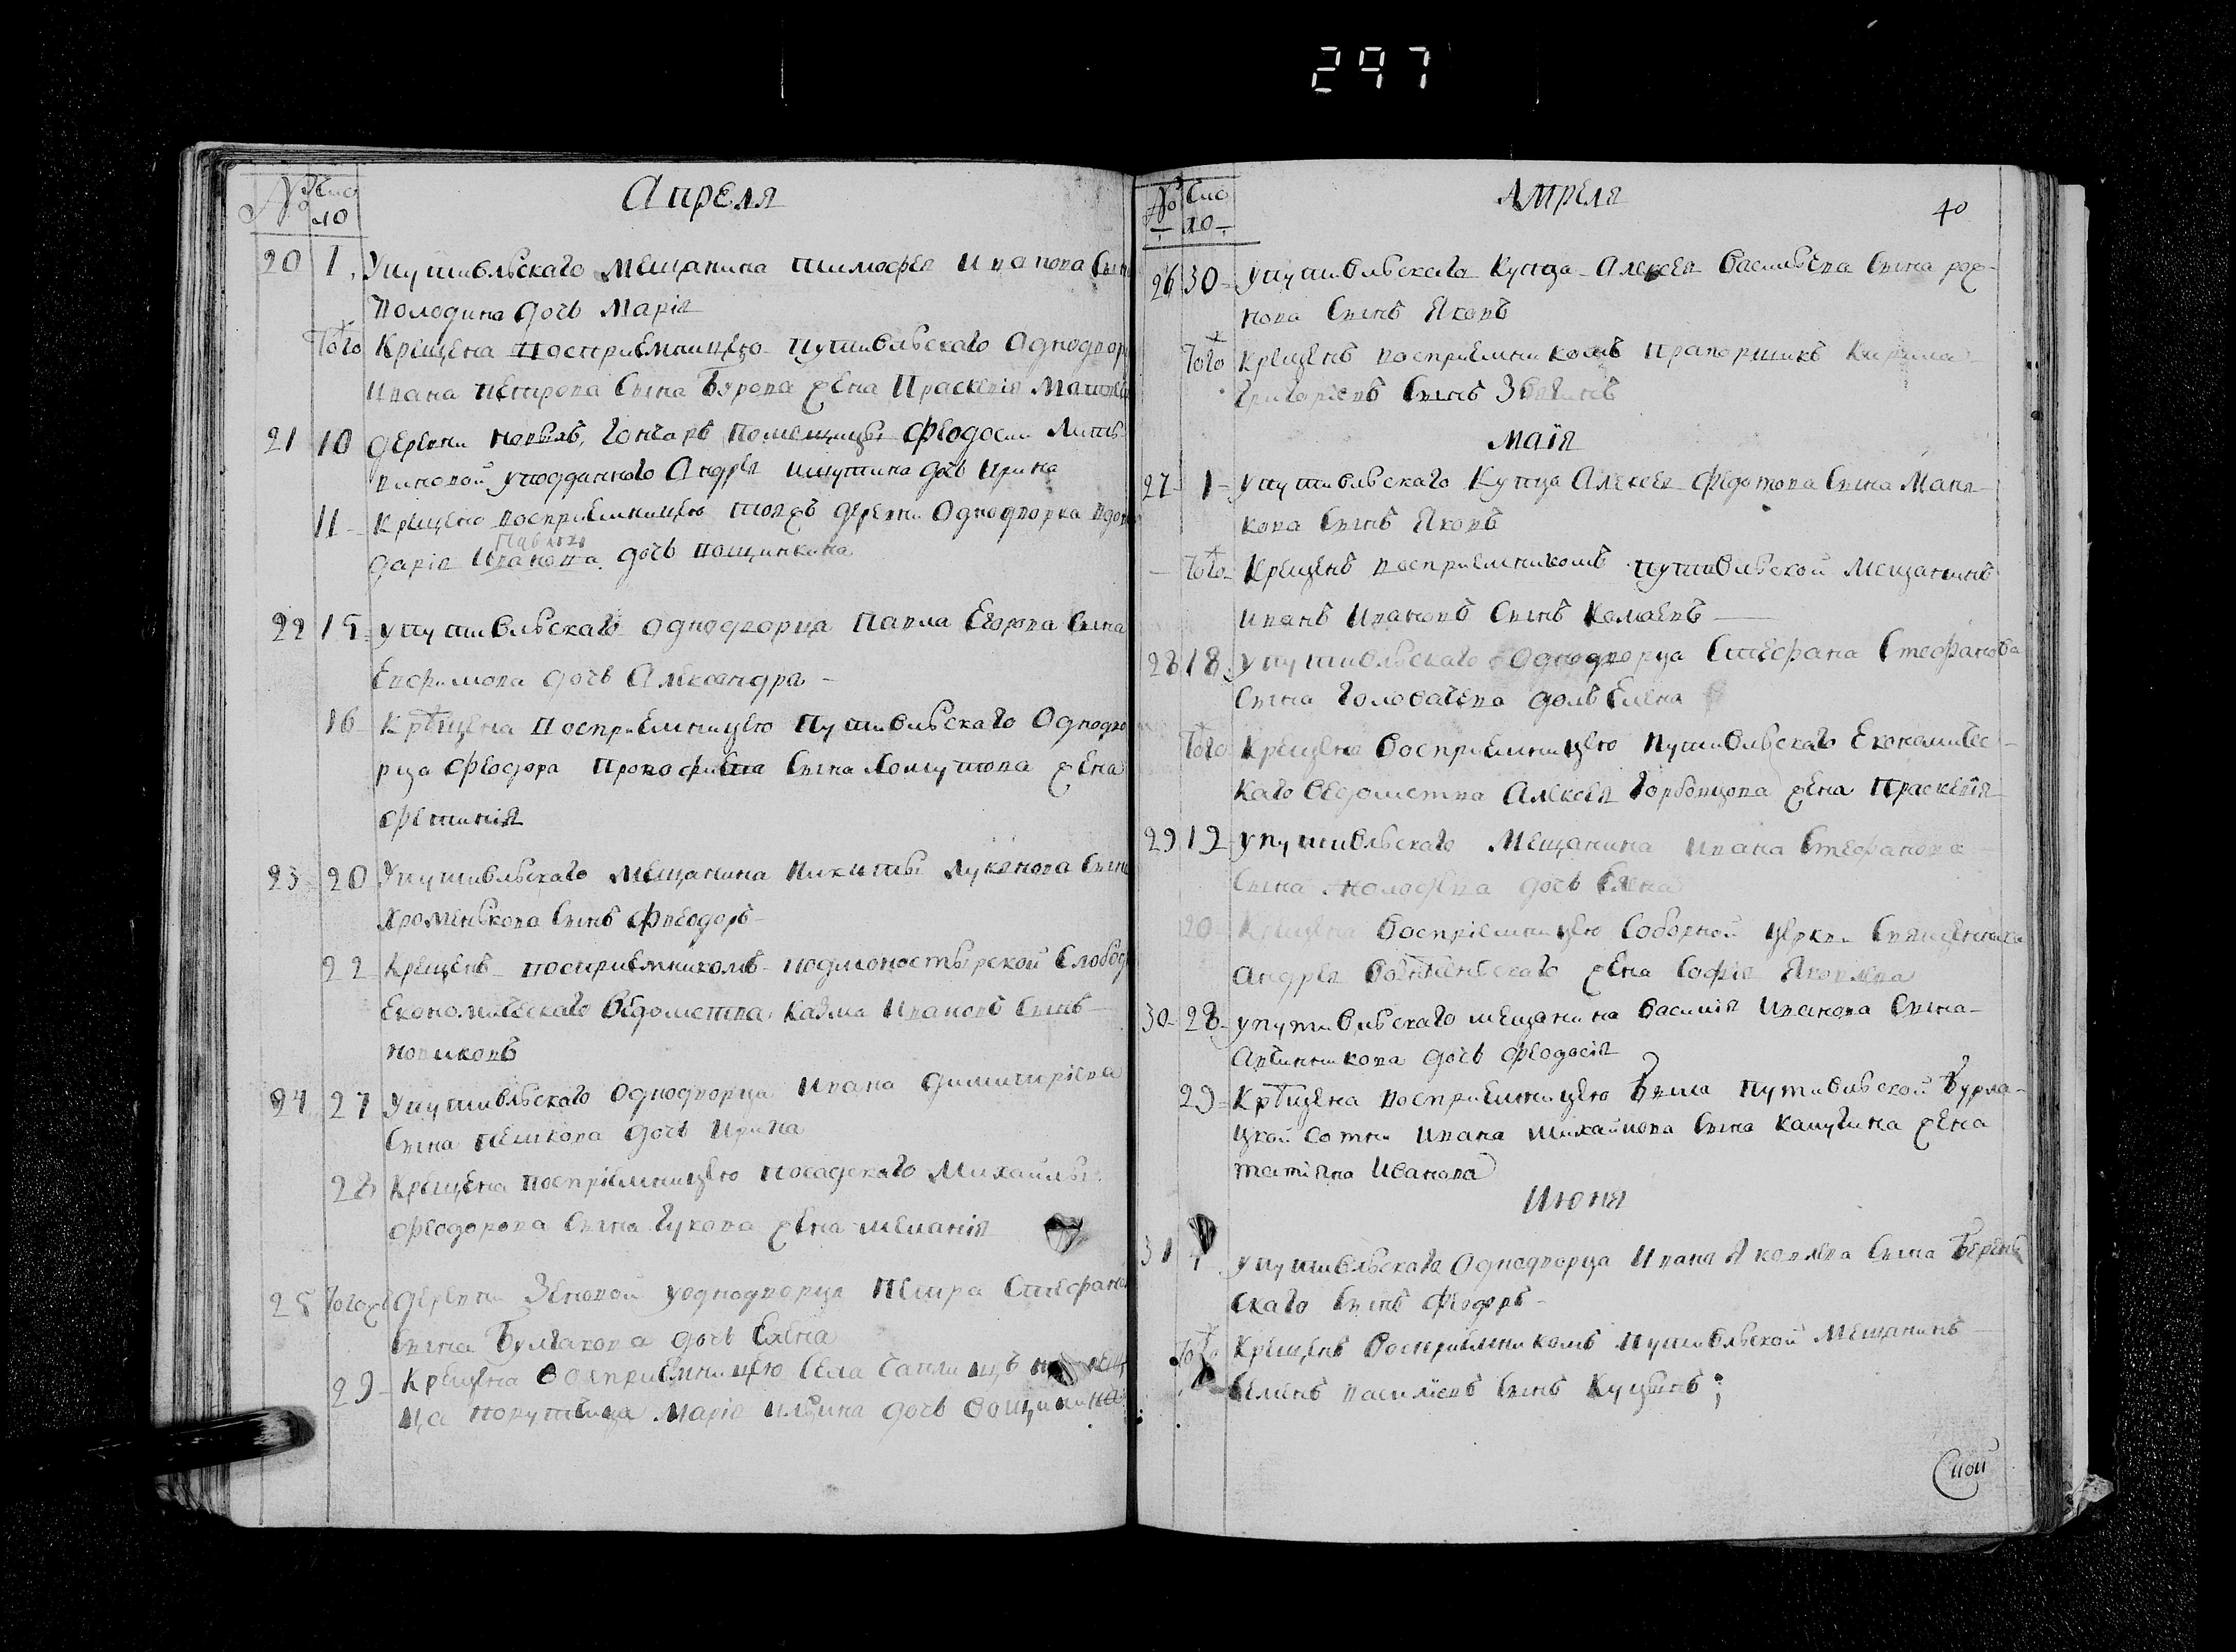 297
№ Чис
ло
Апреля
20 1. У путивльскаго мещанина тимофея иванова сына
володина дочь Марія
Того ж Крещена восприемницею путивльскаго однодвор
ивана петрова сына Бурова жена Праскевія
21 10 деревни новыхъ гончаръ помещицы феодосии Литв
виновой у подданного Андрея ишутина дочь ирина
11 Крещена восприемницею тояжъ деревни однодворка
Павлова
дарія Иванова дочь вощинкина
22 15 у путивльскаго однодворца Павла Егорова сына
Евфимова дочь Александра
16 Крещена восприемницею Путивльскаго Однодво
рца Феодора Прокофиева сына Хомутова жена
фетинія
23 20 У путивльскаго мещанина Никиты Луканова сына
Хроменкова сынъ Феодоръ
22 Крещенъ восприемникомъ подмонастырской слобод
Економическаго ведомства Казма Ивановъ сынъ
новиковъ
24 27 У путивльскаго однодворца Ивана димитріева
сына пешкова дочь ирина
28 Крещена воспріемницею посадскаго Михаилы
Феодорова сына Гукова жена меланія
25 Того ж деревни Зеновой у однодворца Петра Стефано
сына Булгакова дочь Елена
29 Крещена восприемницею села
ца порутчица Марія ильина дочь вощинина
№ Чис
ло
Апреля
40
26 30 у путивльскаго купца Алексея Васильева сына рож
нова сынъ Яковъ
Того ж Крещенъ восприемникомъ прапорщикъ Кирила
Григоріевъ сынъ
маія
27 1 у путивльскаго Купца Алексея Федотова сына Маня
кова сынъ Яковъ
Того ж Крещенъ восприемникомъ путивльской мещанинъ
иванъ ивановъ сынъ Камаевъ
28 18 У путивльскаго однодворца Стефана Стефанова
сына головачева дочь Елена
Того Крещена восприемницею Путивльскаго Економичес
каго ведомства Алексея Горбовцова жена Праскевія
29 19 у путивльскаго мещанина ивана Стефанова
сына молодева дочь Елена
20 Крещена воспріемницею соборной церкви священника
андрея вознесенскаго жена Софія Яковлева
30 28 у путивльскаго мещанина василія иванова сына
Авчинникова дочь феодосія
29 Крещена восприемницею бывша Путивльской Бурла
цкой сотни ивана михайлова сына Капугина жена
татіяна Иванова
Июня
31 4 у путивльскаго однодворца ивана Яковлева сына Береже
скаго сынъ феодоръ
Того ж Крещенъ восприемникомъ путивльской мещанинъ
Семенъ василіевъ сынъ Куцынъ;
Свой